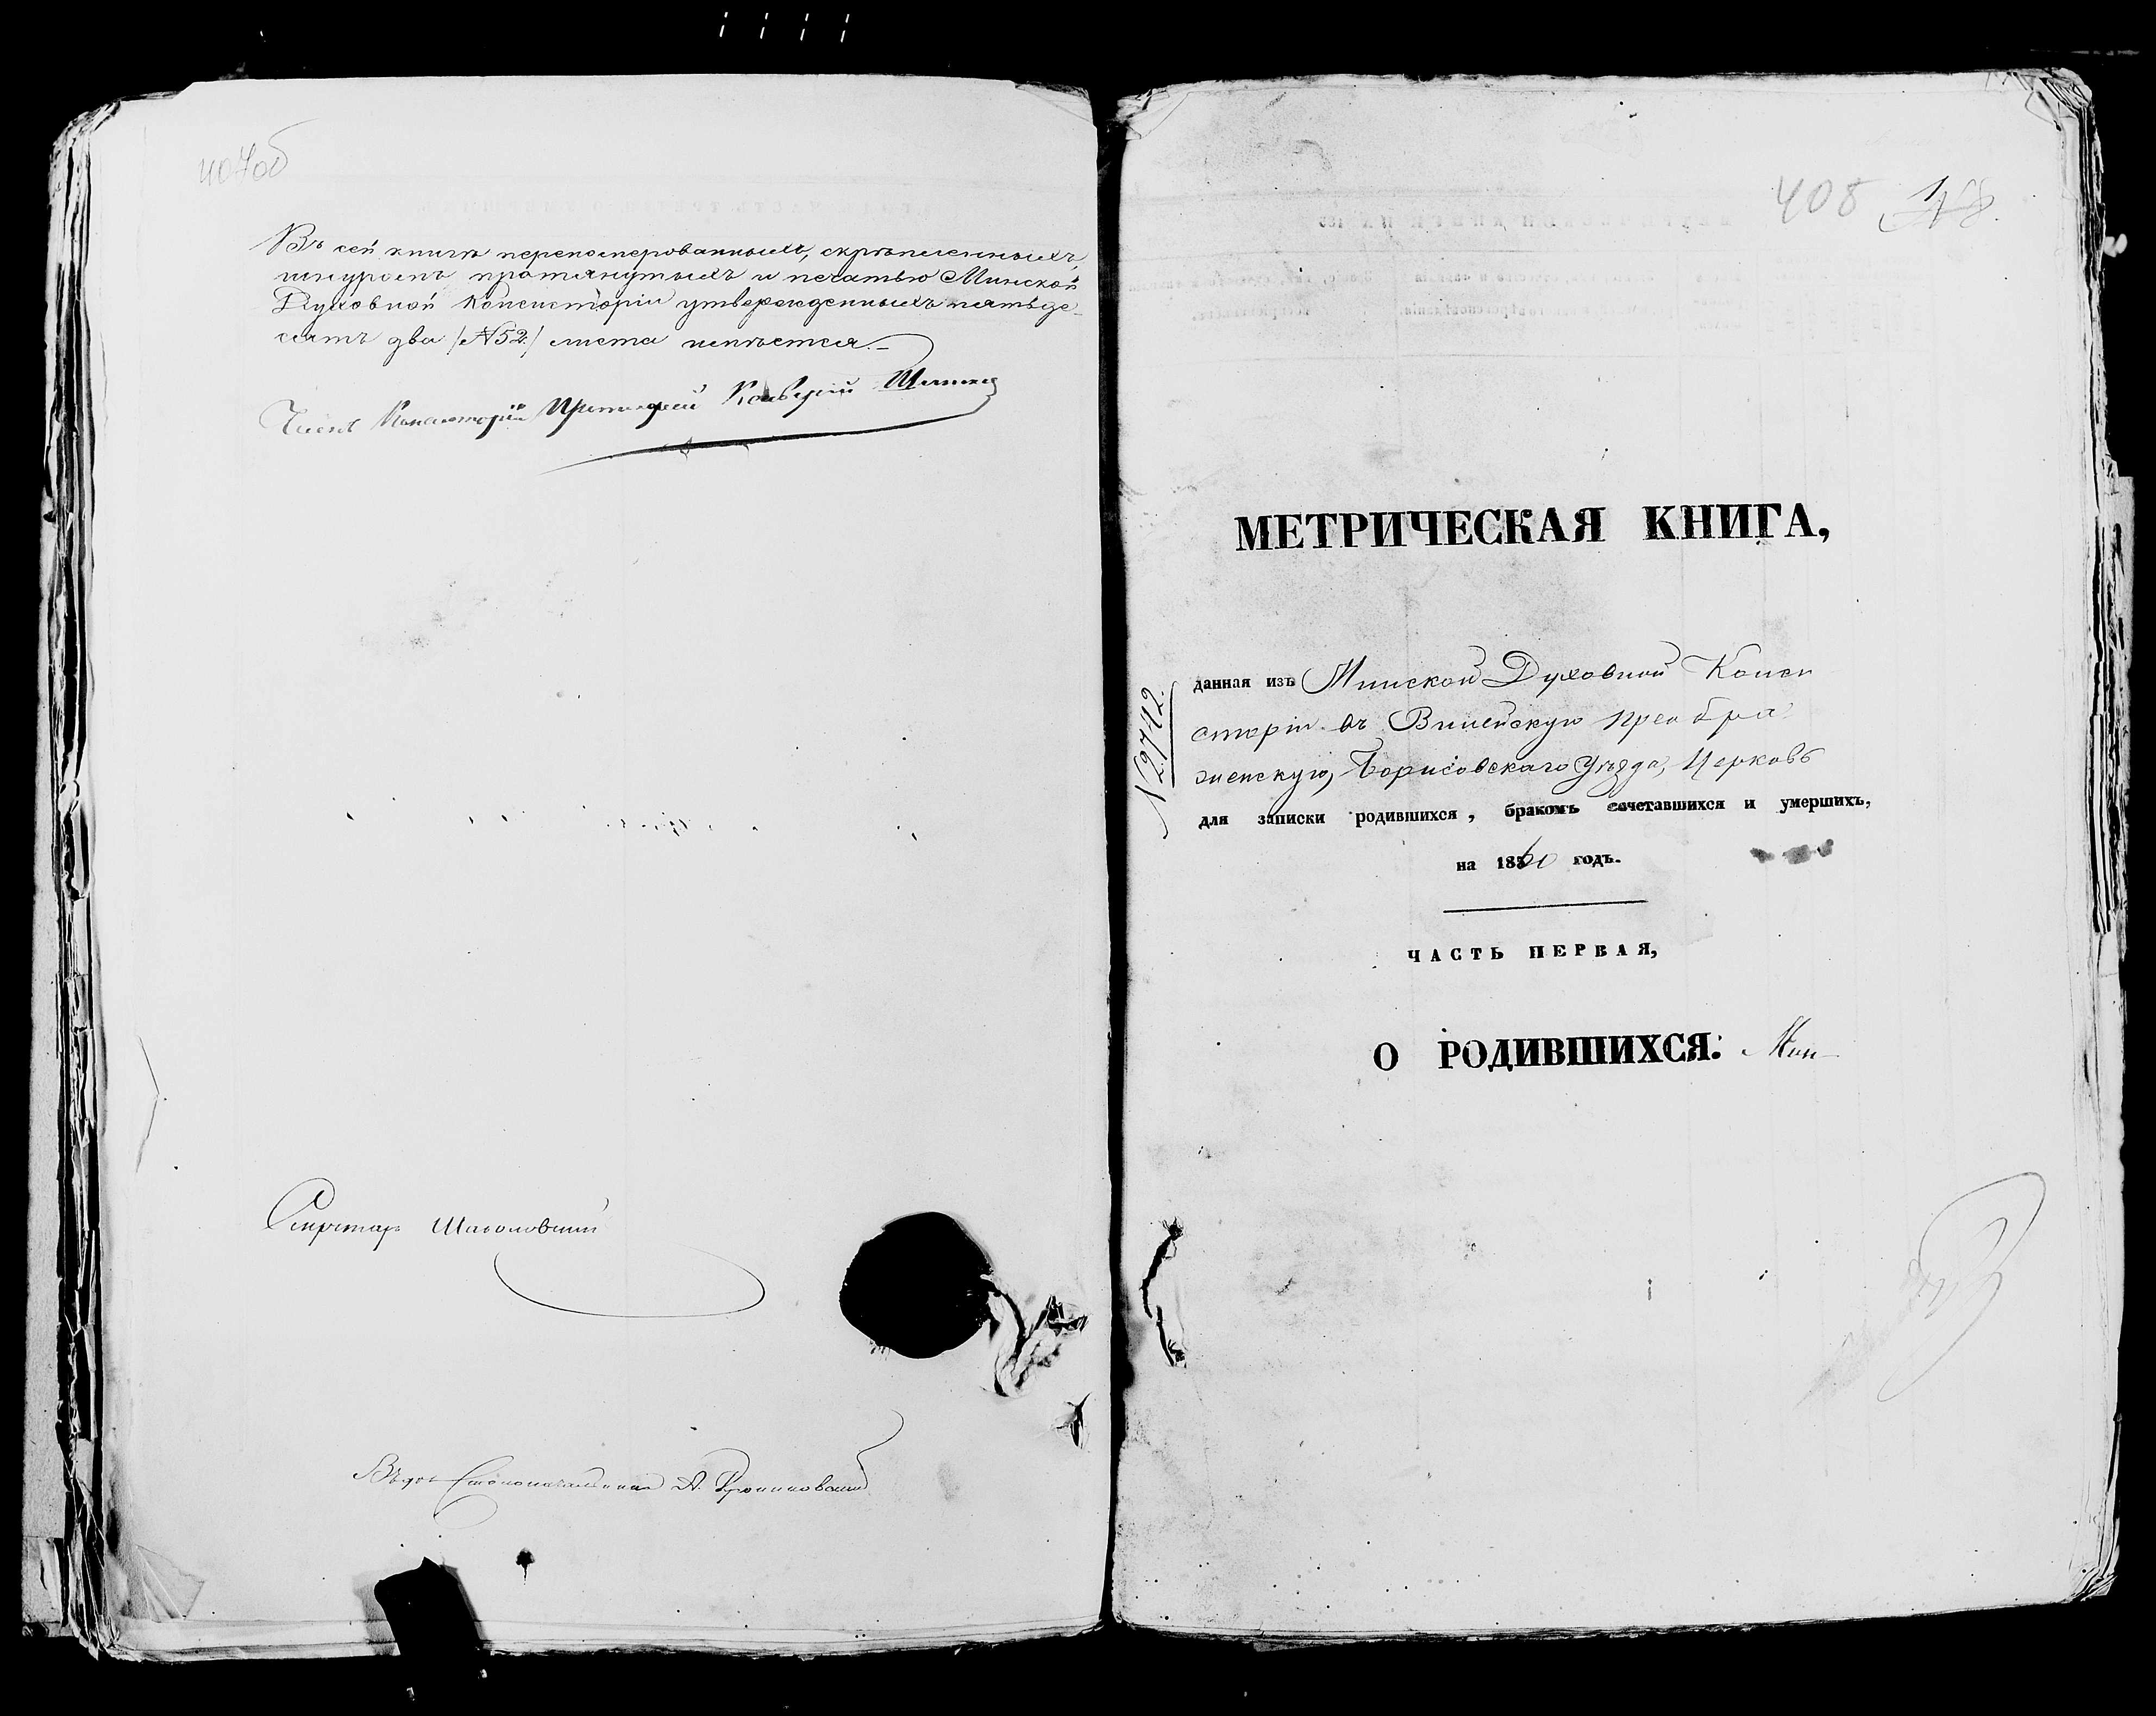 407об
Въ сей книги переномерованныхъ, скрѣпленныхъ,
шнуромъ протянутыхъ и печатью Минской
Духовной Консисторіи утвержденныхъ пятьде-
сятъ два /№ 52/ листа имѣется.
Членъ Консисторіи Протоіерей
Секретарь
Столоначальника А.
408
МЕТРИЧЕСКАЯ КНИГА,
№ 2742.
данная изъ Минской Духовной Конси
сторіи въ Вилейскую Преобра
женскую, Борисовскаго Уѣзда, Церковь
для записки родившихся, бракомъ сочетавшихся и умершихъ,
на 1860 годъ.
ЧАСТЬ ПЕРВАЯ,
О РОДИВШИХСЯ. Мин-